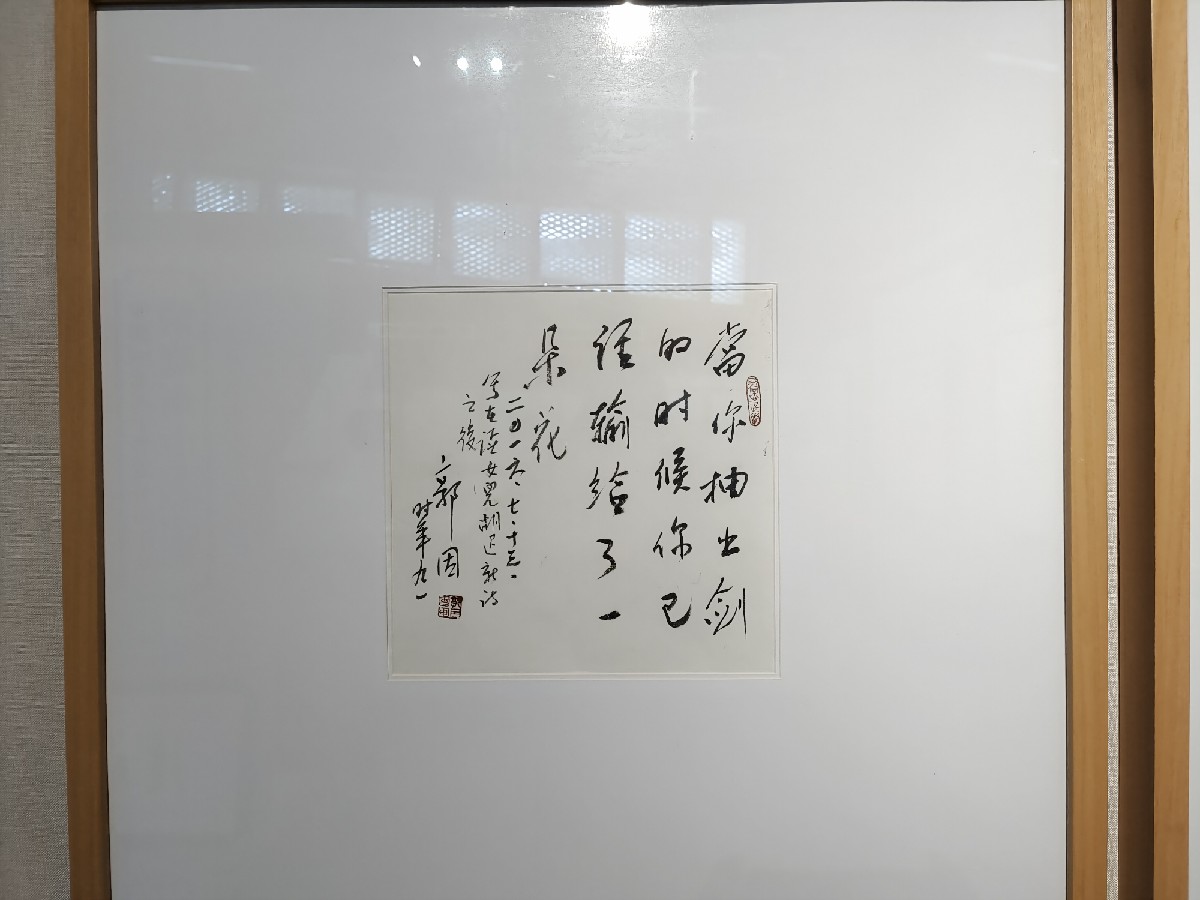 當你抽出剑
的时候你已
经输给了一
朵花
二〇一六.七.十三.
写在读女儿胡迅新诗
之後
郭因
时年九一